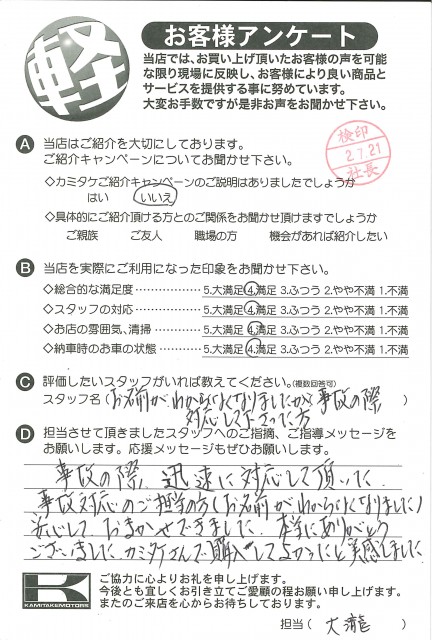 軽
お客様アンケート
当店では、お買い上げ頂いたお客様の声を可能
な限り現場に反映し、お客様により良い商品と
サービスを提供する事に努めています。
大変お手数ですが是非お声をお聞かせ下さい。
検印
2.7.21
社長
A 当店はご紹介を大切にしております。
ご紹介キャンペーンについてお聞かせ下さい。
◇カミタケご紹介キャンペーンのご説明はありましたでしょうか
はい いいえ
◇具体的にご紹介頂ける方とのご関係をお聞かせ頂けますでしょうか
ご親族 ご友人 職場の方 機会があれば紹介したい
B 当店を実際にご利用になった印象をお聞かせ下さい。
◇総合的な満足度………………5.大満足 4.満足 3.ふつう 2.やや不満 1.不満
◇スタッフの対応………………5.大満足 4.満足 3.ふつう 2.やや不満 1.不満
◇お店の雰囲気、清掃…………5.大満足 4.満足 3.ふつう 2.やや不満 1.不満
◇納車時のお車の状態…………5.大満足 4.満足 3.ふつう 2.やや不満 1.不満
C 評価したいスタッフがいれば教えてください。(複数回答可)
スタッフ名(お名前がわからなくなりましたが事故の際
対応して下さった方 )
D 担当させて頂きましたスタッフへのご指摘、ご指導メッセージを
お願いします。応援メッセージもぜひお願いします。
事故の際、迅速に対応して頂いた
事故対応のご担当の方(お名前がわからなくなりました)
安心して、おまかせできました。本当にありがとう
ございました。カミタケさんで購入して良かったと実感しました
K
KAMITAKEMOTORS
ご協力に心よりお礼を申し上げます。
今後とも宜しくお引き立てご愛顧の程お願い申し上げます。
またのご来店を心からお待ちしております。
担当( 大瀧 )